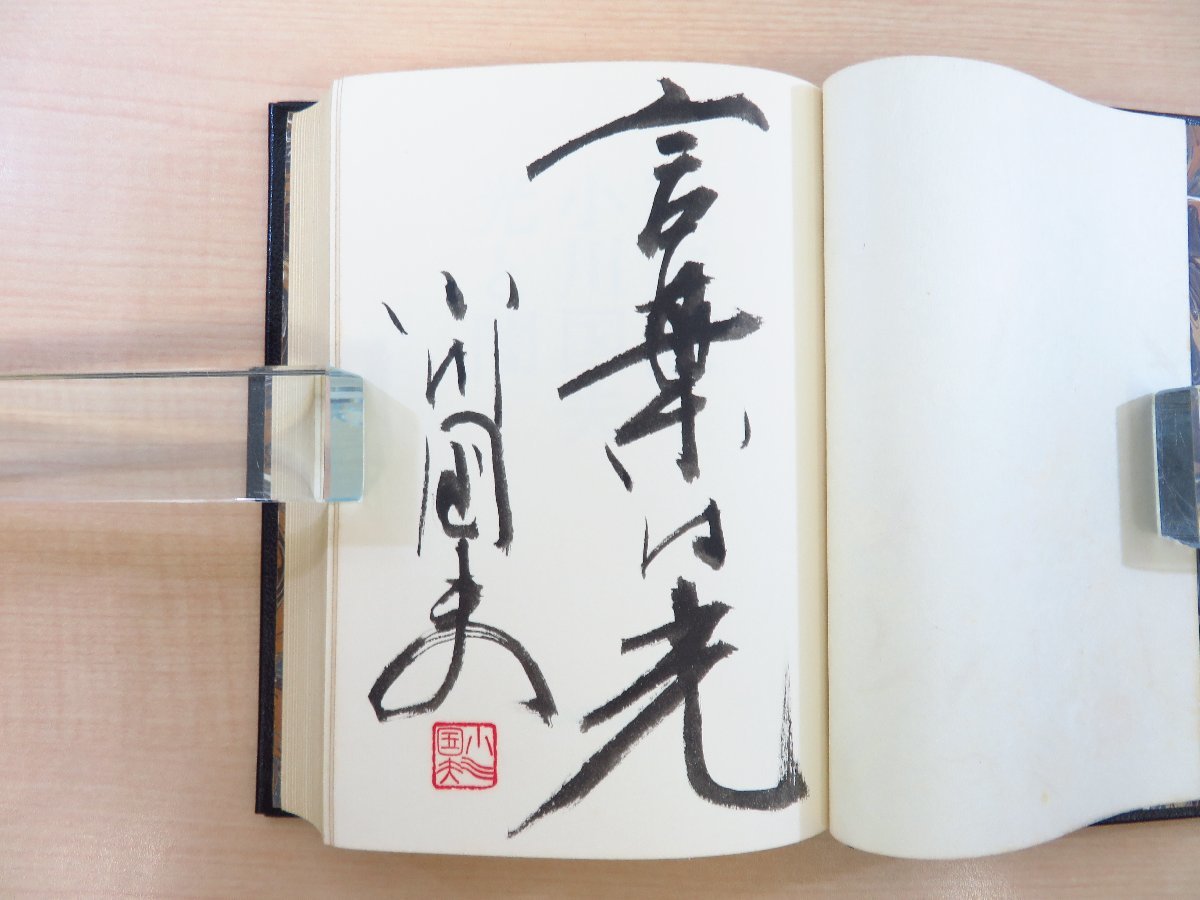 言葉は光
小川国夫
小川国夫